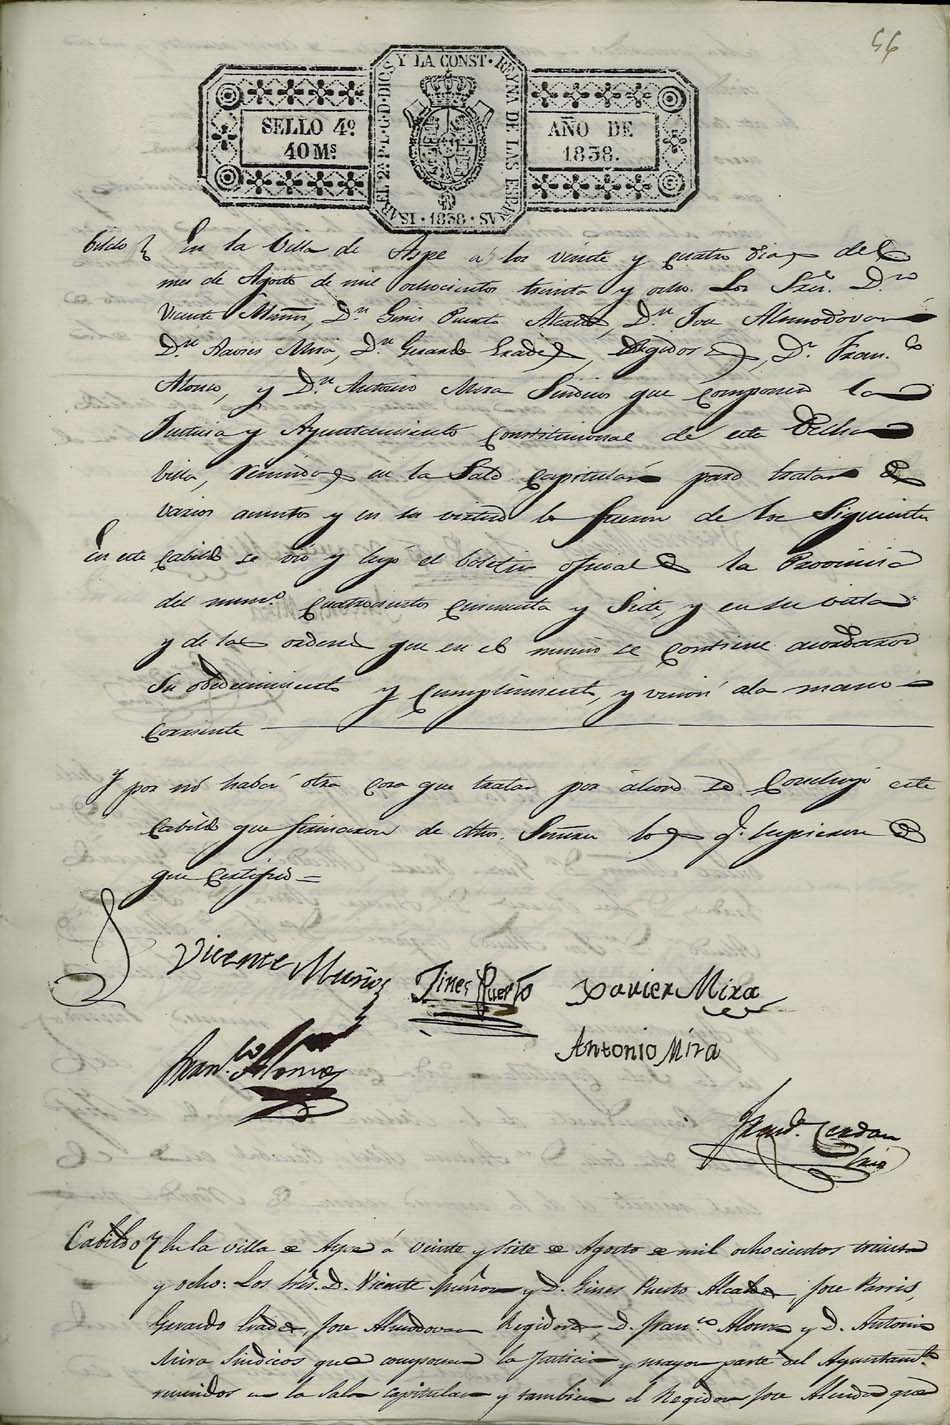 56
ISABEL 2ª P. L. G. D. DIOS Y LA CONST. REYNA DE LAS ESPAÑAS · 1838 ·
SELLO 4º
40 Ms
AÑO DE
1838.
Cabildo En la Villa de Aspe á los veinte y cuatro dias del
mes de Agosto de mil ochocientos treinta y ocho. Los Sres. Dn
Vicente Muñoz, Dn Gines Puerto Alcaldes, Dn Jose Almodovar
Dn Xavier Mira, Dn Gerardo Erades, Regidores, Dn Franco
Alonso, y Dn Antonio Mira Sindicos que componen la
Justicia y Ayuntamiento Constitucional de esta Dicha
Villa, reunidos en la Sala Capitular para tratar de
varios asuntos y en su virtud lo fueron de los Siguientes
En este Cabildo se vio y leyó el boletin oficial de la Provincia
del numo cuatrocientos cincuenta y Siete, y en su vista
y de las ordenes que en el mismo se contiene acordaron
Su obedecimiento y cumplimiento, y union á la mano
Corriente
Y por no haber otra cosa que tratar por ahora se Concluyó este
Cabildo que firmaron de dhos. Señores los q. supieron de
que Certifico =
Vicente Muñoz Jines Puerto Xavier Mira
Antonio Mira
Franco Alonso
Cerdan
Srio
Cabildo En la villa de Aspe á veinte y siete de Agosto de mil ochocientos treinta
y ocho: Los Sres. D. Vicente Muñoz y D. Gines Puerto Alcaldes, Jose
Gerardo Erades, Jose Almodovar Regidores, D. Franco Alonso y D. Antonio
Mira Sindicos que componen la Justicia y mayor parte del Ayuntamto
reunidos en la Sala capitular y tambien el Regidor Jose que